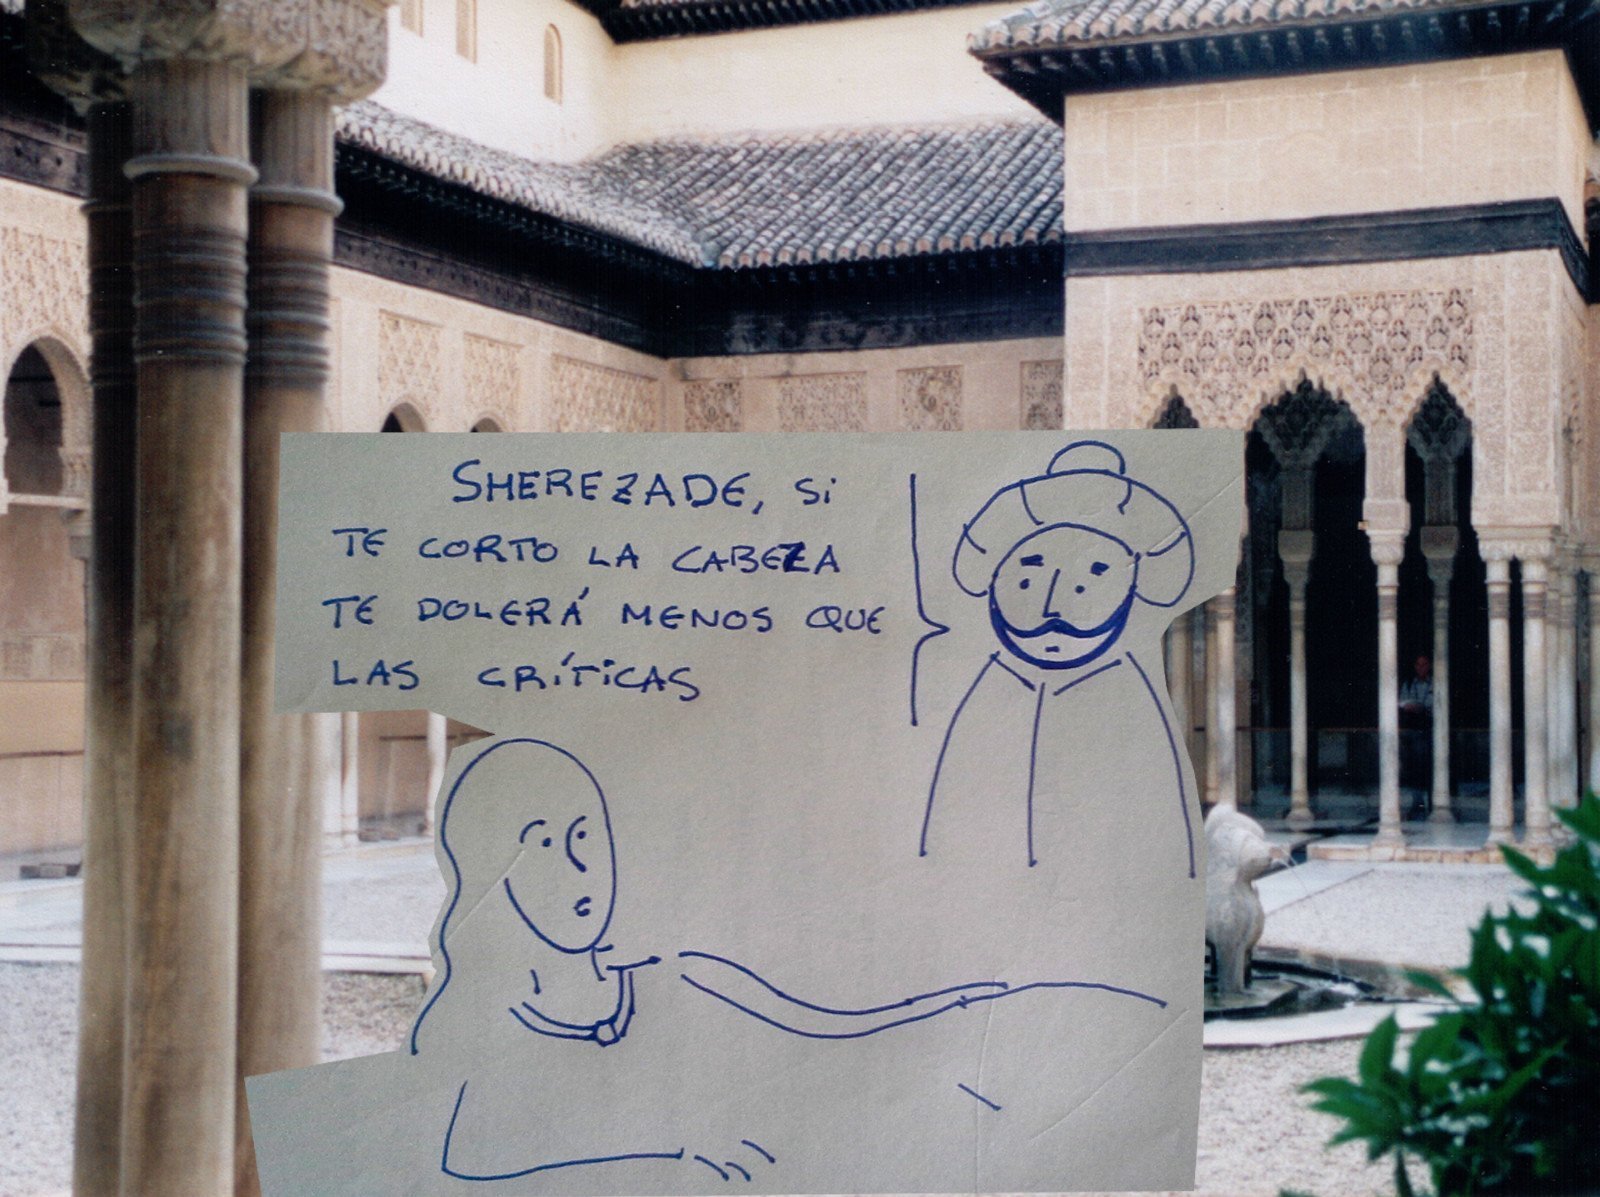 SHEREZADE, Si
TE CORTO LA CABEZA
TE DOLERÁ MENOS QUE
LAS CRÍTiCAS